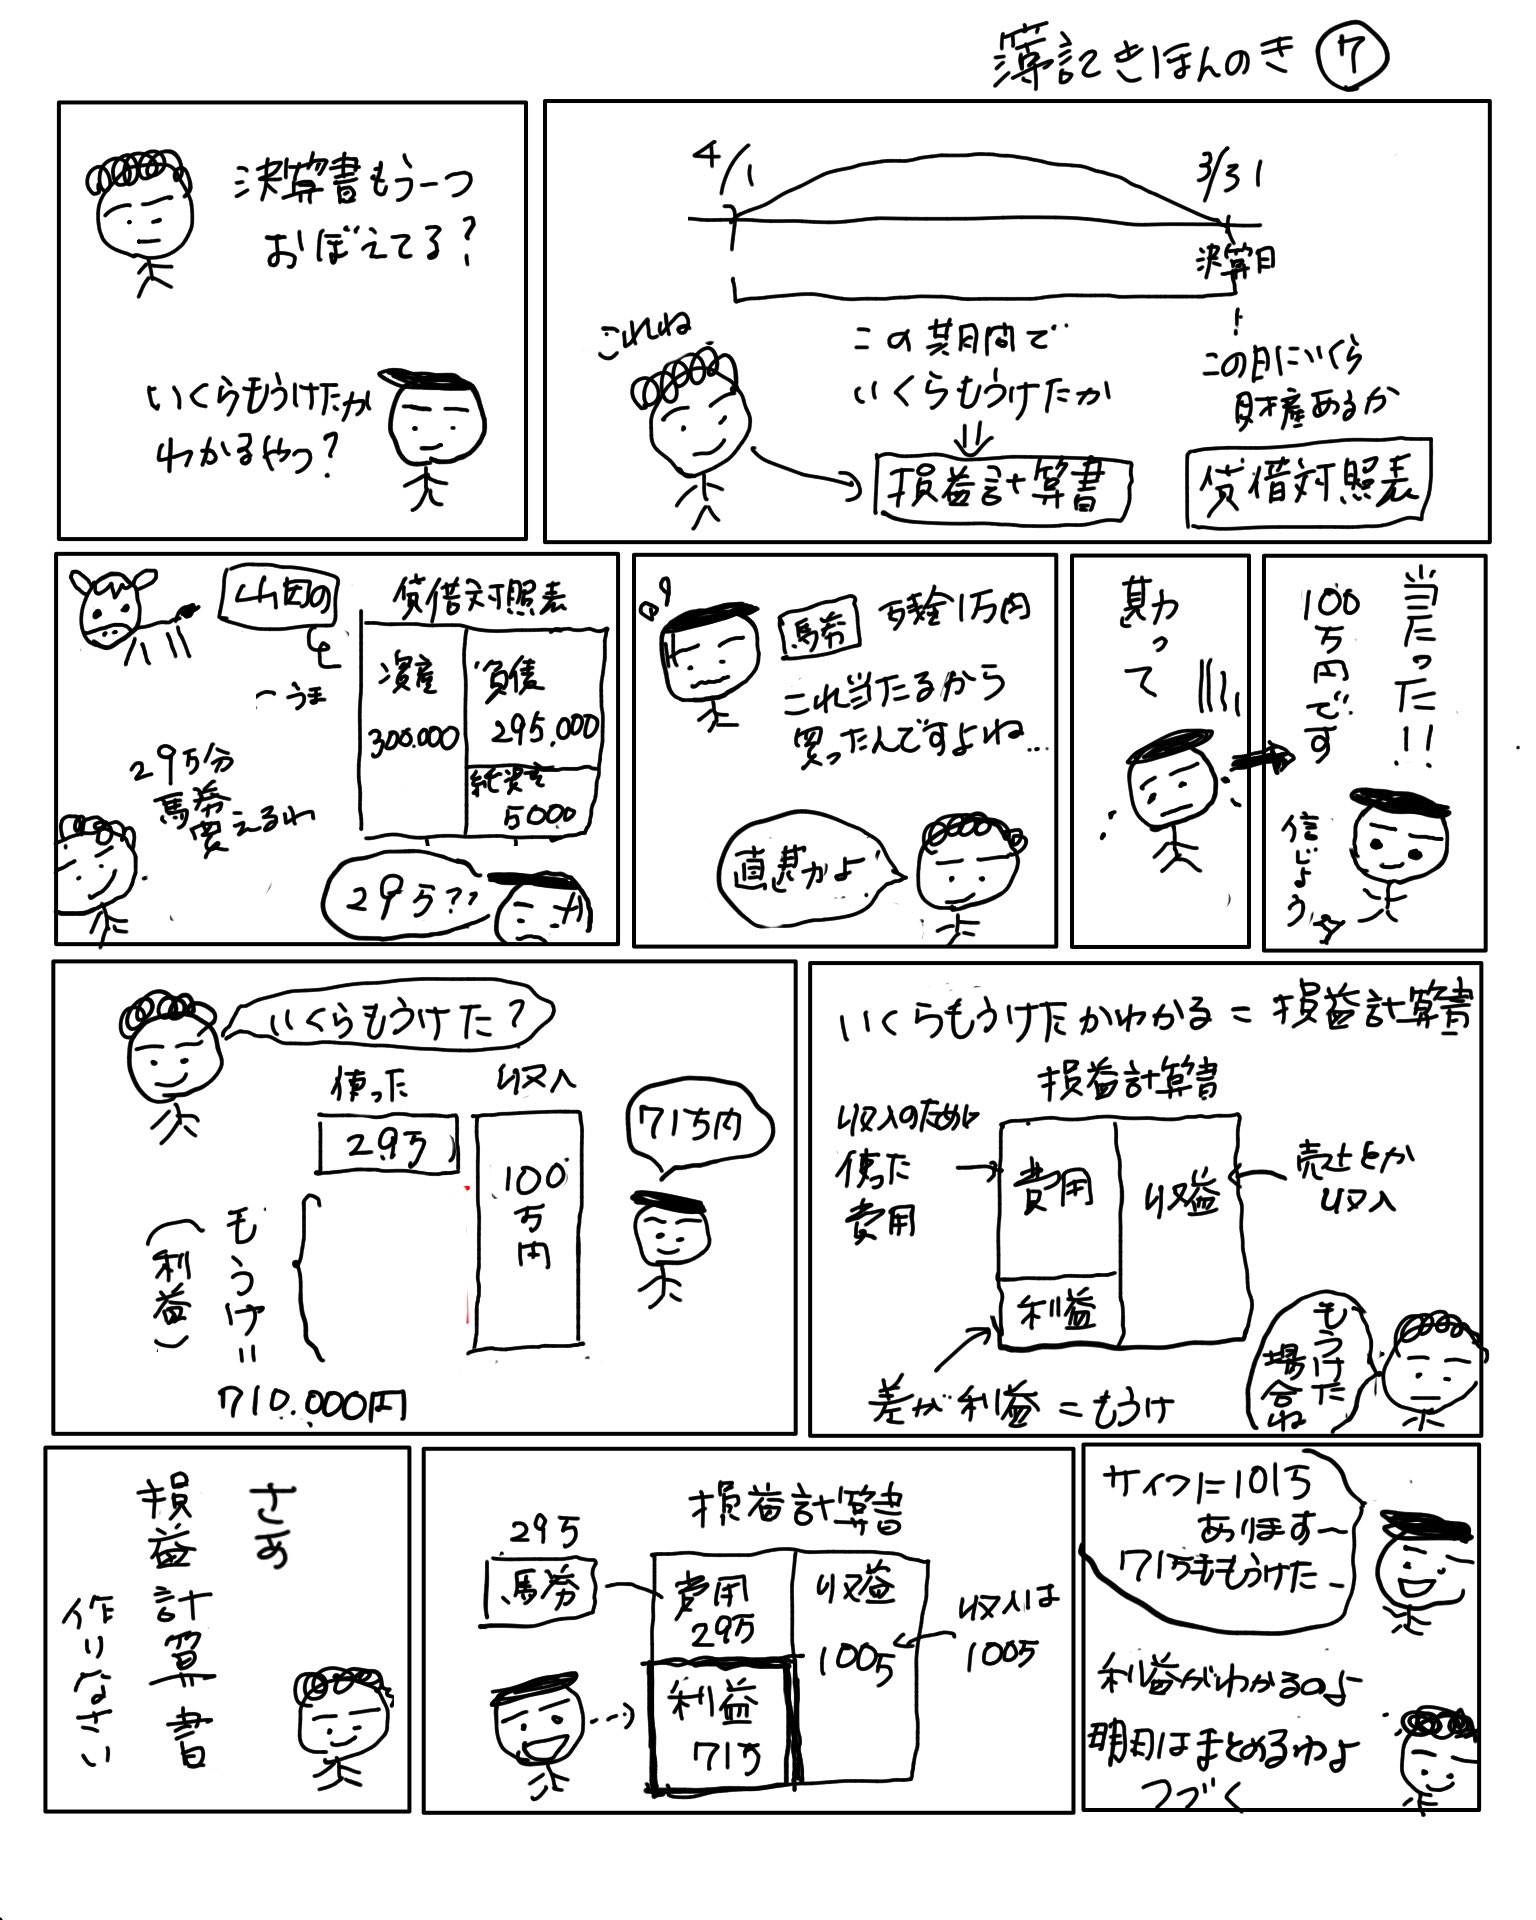 簿記きほんのき ⑦
決算書もう一つ
おぼえてる?
いくらもうけたか
わかるやつ?
4/1
3/31
決算日
これね
この期間で
いくらもうけたか
損益計算書
この日にいくら
財産あるか
貸借対照表
山田の
貸借対照表
資産
300.000
負債
295.000
純資産
5000
うま
29万分
馬券
買えるわ
29万??
馬券
残金1万円
これ当たるから
買ったんですよね…
直感かよ
真力
って
当たった!!
100万円です
信じよう
いくらもうけた?
使った
29万
収入
100万円
71万円
もうけ=
(利益)
710.000円
いくらもうけたかわかる=損益計算書
損益計算書
収入のために
使った
費用
費用
収益
利益
売上とか
収入
差が利益=もうけ
もうけた
場合ね
さあ
損益計算書
作りなさい
損益計算書
29万
馬券
費用
29万
収益
100万
利益
71万
収入は
100万
サイフに101万
あります〜
71万ももうけた
利益がわかるのよ
明日はまとめるわよ
つづく